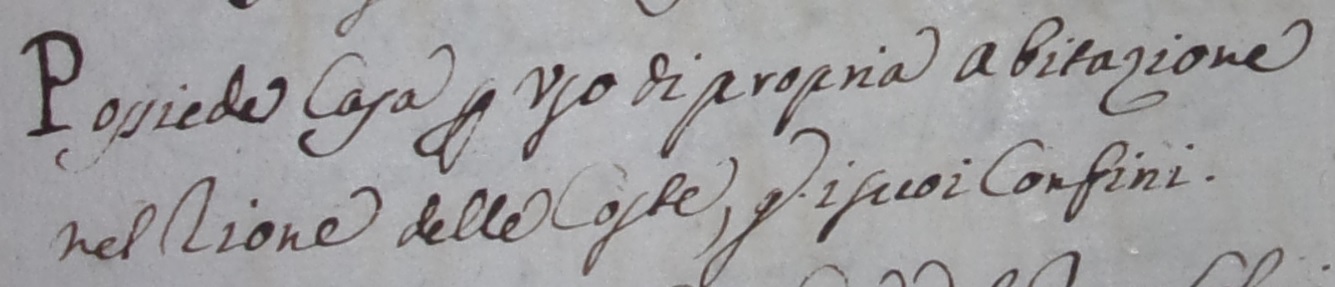 Possiede Casa p Uso di propria abitazione
nel Rione delle Coste, p. i suoi Confini.